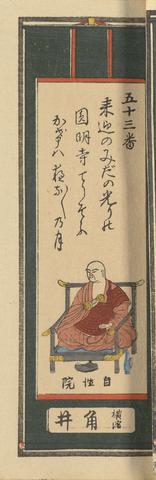 五十三番
来迎のみだの光りの
圓明寺てりそふ
かげハ夜な〱乃月
院性自
横濱
井角